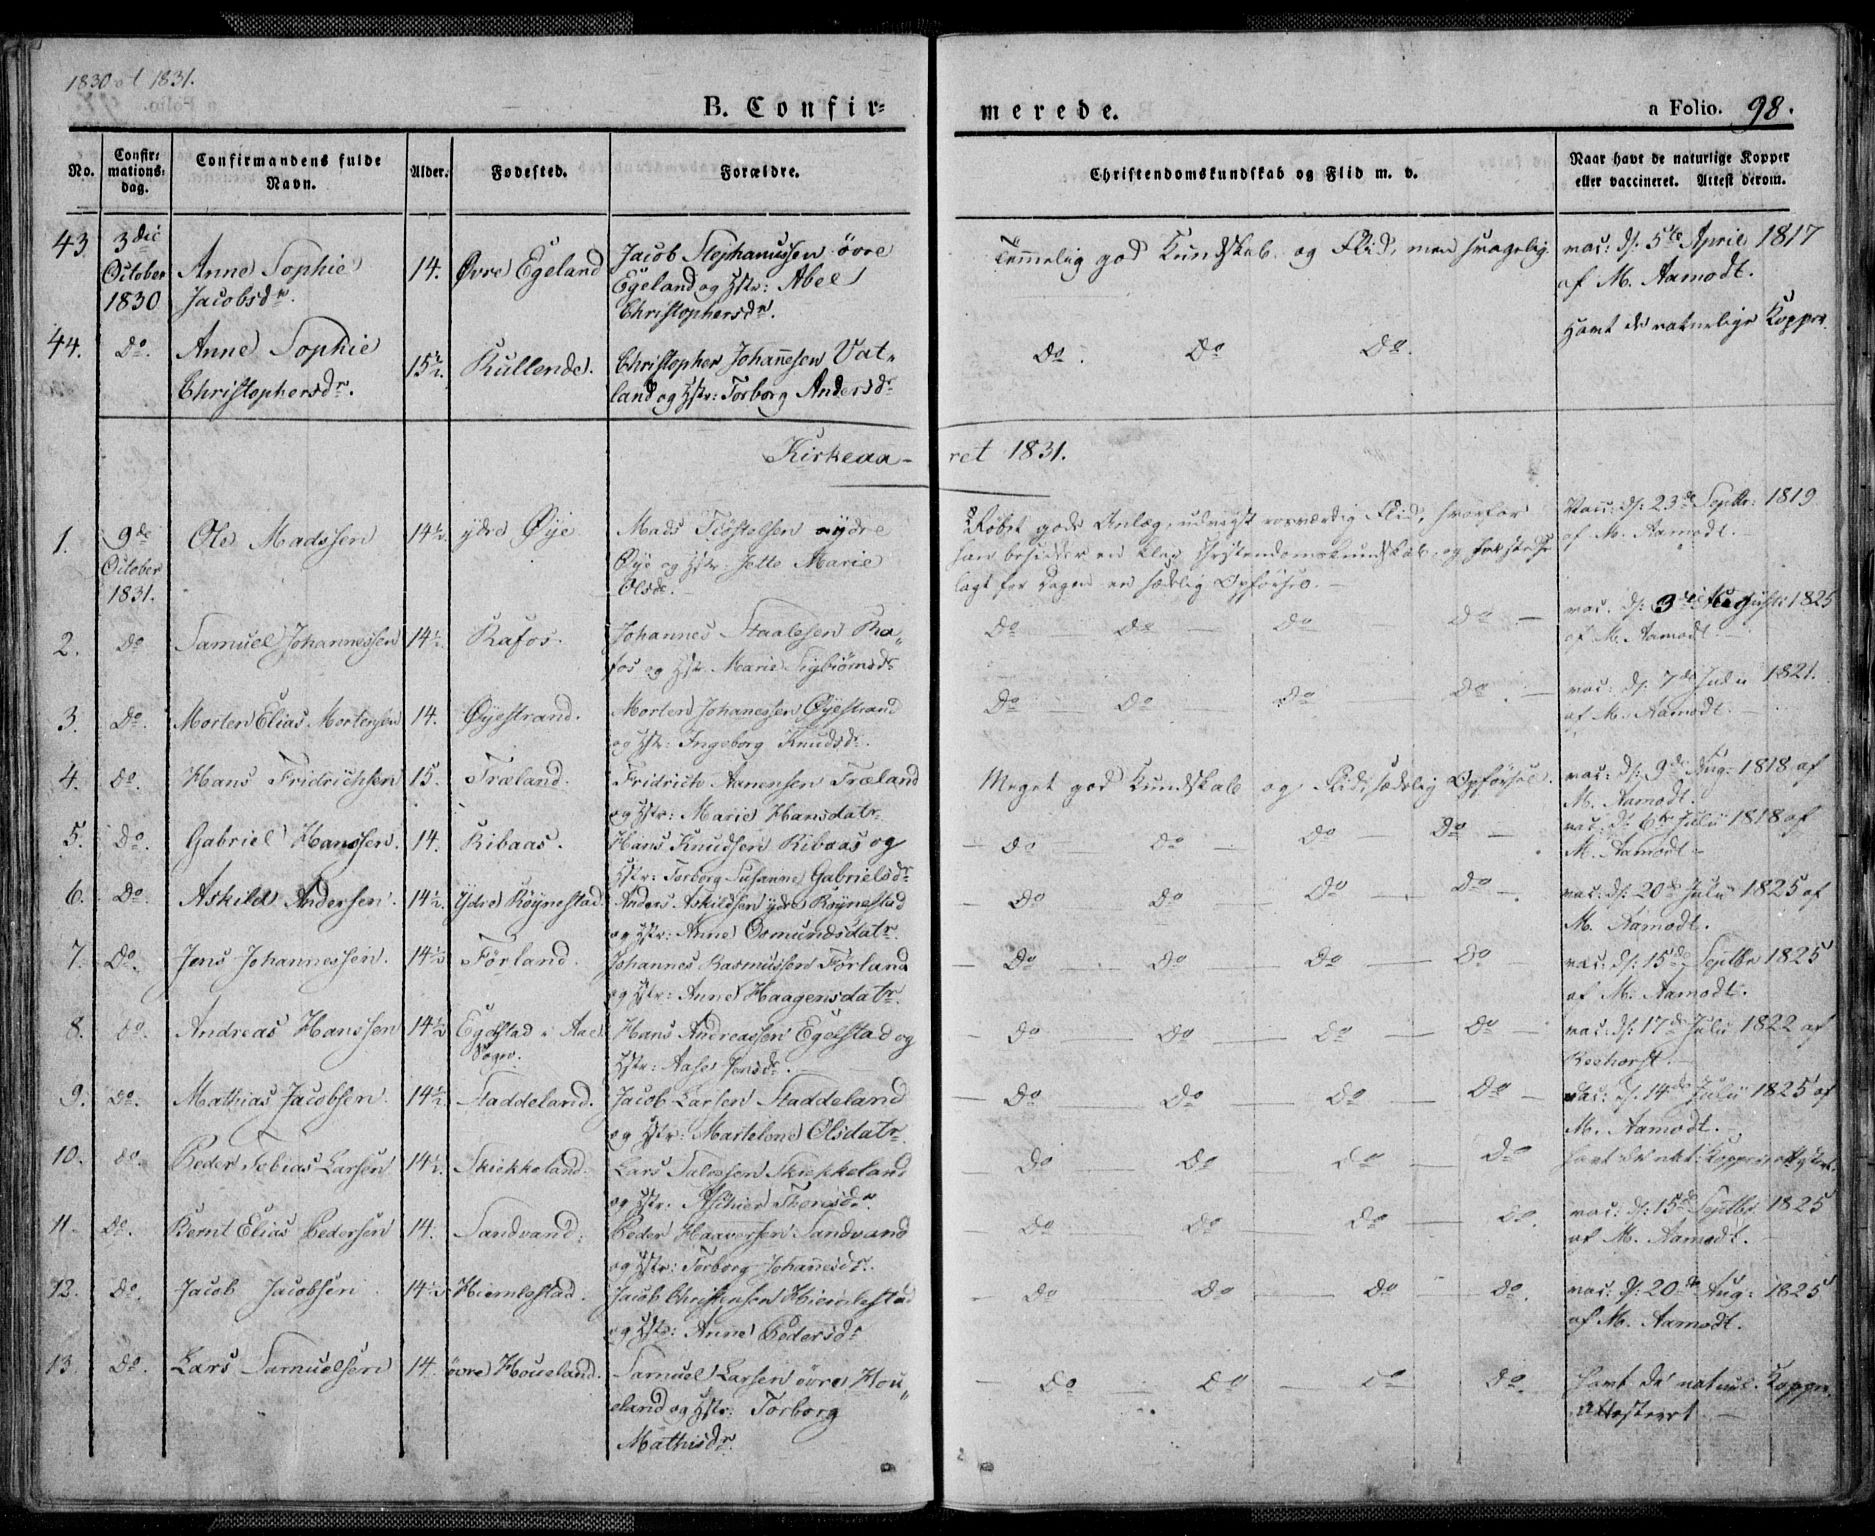 1830 et 1831.
B. Confir= merede.
a Folio. 98.
No.
Confir=
mations=
dag.
Confirmandens fulde
Navn.
Alder.
Fødested.
Forældre.
Christendomskundskab og Flid m. v.
Naar havt de naturlige Kopper
eller vaccineret. Attest derom.
43. 3die October 1830 Anne Sophie Jacobsdr. 14. Øvre Egeland Jacob Stephanussen övre
Egeland og Hstr: Abel
Christophersdr.
Temmelig god Kundskab og Flid, men svagelig.
vac: d: 5te April 1817
af M. Aamodt.
44. Do. Anne Sophie Christophersdr. 15½. Kullende. Christopher Johannesen Vat„
land og Hstr: Torborg Andersdr
Do. Do Do.
Havt de naturlige Kopper.
Kirkeaa- ret 1831.
1. 9de October 1831. Ole Madssen 14½. ydre Øye Mads Tiøstelsen ydre
Øye og Hstr: Jette Marie
Olsdr.
gode Anlæg, udviist Flid, hvorfor
han besidder en Christendomskundskab, og
lagt for Dagen en sædelig Opförsel. -
Vacc: d: 23de Septbr: 1819
af M. Aamodt.
2. Do Samuel Johannessen 14½. Rafos. Johannes Staalesen Ra„
fos og Hstr. Marie Sigbiörnsdr
Do Do - Do - Do -
vac. d: 3die Augusti 1825
af M. Aamodt. -
3. Do. Morten Elias Mortensen 14. Øyestrand. Morten Johanessen Øyestrand
og Hstr: Ingeborg Knudsdr.
Do - Do - Do - Do -
vac: d: 7de Julii 1821.
af M. Aamodt. -
4. Do. Hans Fridrichsen 15. Træland. Fridrich Aanensen Træland
og Hstr: Marie Hansdatr
Meget god Kundskab og Flid, sædelig Opförsel.
vac: d: 9de Aug: 1818 af
M. Aamodt.
5. Do. Gabriel Hanssen. 14. Ribaas. Hans Knudsen Ribaas og
Hstr: Torborg Susanne Gabrielsdr
- Do - Do - Do - Do -
vac: d: 6te Julii 1818 af
M. Aamodt -
6. Do. Askild Andersen. 14½. Ydre Röynestad Anders Askildsen ydre Röynestad
og Hstr: Anne Osmundsdatr.
- Do - Do - Do - Do -
vac: d: 20de Julii 1825 af
M. Aamodt.
7. Do. Jens Johannessen. 14½ Förland. Johannes Rasmussen Förland
og Hstr: Anne Haagensdatr.
- Do - Do - Do - Do -
vac: d: 15de Septbr 1825
af M. Aamodt.
8. Do. Andreas Hanssen 14½ Egelstad i
Sogn.
Hans Andreassen Egelstad og
Hstr: Aase Jensdr.
- Do - Do - Do - Do -
vac: d: 17de Julii 1822 af
Reehorst. -
9. Do. Mathias Jacobsen 14½ Staddeland. Jacob Larsen Staddeland
og Hstr: Martelene Olsdatr.
- Do - Do - Do - Do -
vac: d: 14de Julii 1825 af
M. Aamodt. -
10. Do. Peder Tobias Larsen 14½. Skiekkeland. Lars Skiepkeland
og Hstr: Thoresdr.
Do - Do - Do - Do
havt de nat: Kopper
11. Do. Bernt Elias Pedersen 14. Sandvand. Peder Haaversen Sandvand
og Hstr: Torborg Johannesdr.
Do - Do - Do - Do.
vac: d: 15de Septbr 1825
af M. Aamodt. -
12. Do. Jacob Jacobsen 14½ Hiemlestad. Jacob Christensen Hiemlestad
og Hstr: Anne Pedersdr
- Do - Do - Do - Do.
vac: d: 20de Aug: 1825
af M. Aamodt.
13. Do. Lars Samuelsen 14. övre Houeland. Samuel Larsen övre Hou„
eland og Hstr: Torborg
Mathisdr.
- Do - Do - Do - Do.
havt de naturl. Kopper.
Attesteret. -